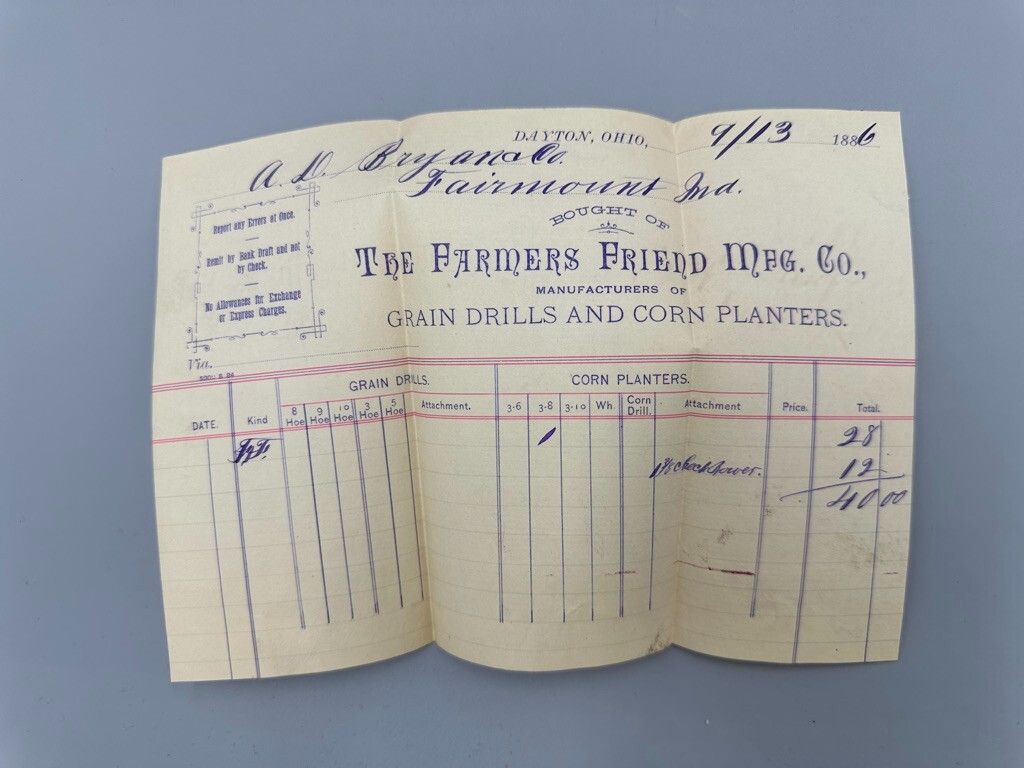 DAYTON, OHIO, 9/13 1886
A. D. Bryan & Co.
Fairmount Ind.
BOUGHT OF
THE FARMERS FRIEND MFG. CO.,
MANUFACTURERS OF
GRAIN DRILLS AND CORN PLANTERS.
Report any Errors at Once.
Remit by Bank Draft and not
by Check.
No Allowances for Exchange
or Express Charges.
Via.
GRAIN DRILLS. CORN PLANTERS.
DATE. Kind 8 Hoe 9 Hoe 10 Hoe 3 Hoe 5 Hoe Attachment. 3·6 3·8 3·10 Wh. Corn Drill. Attachment Price. Total.
1 28
Check Rower. 12
40 00